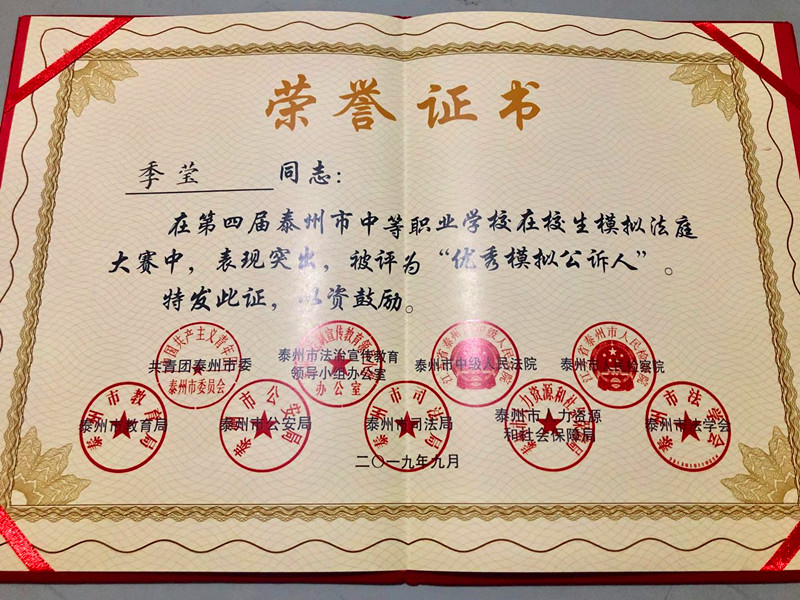 荣誉证书
季莹 同志：
在第四届泰州市中等职业学校在校生模拟法庭
大赛中，表现突出，被评为“优秀模拟公诉人”。
特发此证，以资鼓励。
共青团泰州市委
泰州市法治宣传教育
领导小组办公室
泰州市中级人民法院
泰州市人民检察院
泰州市教育局
泰州市公安局
泰州市司法局
泰州市人力资源
和社会保障局
泰州市法学会
二〇一九年九月
泰州市委员会
办公室
泰州市教育局
泰州市司法局